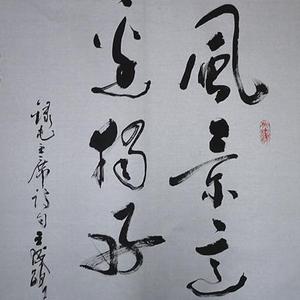 風景這
邊獨好
錄毛主席詩句